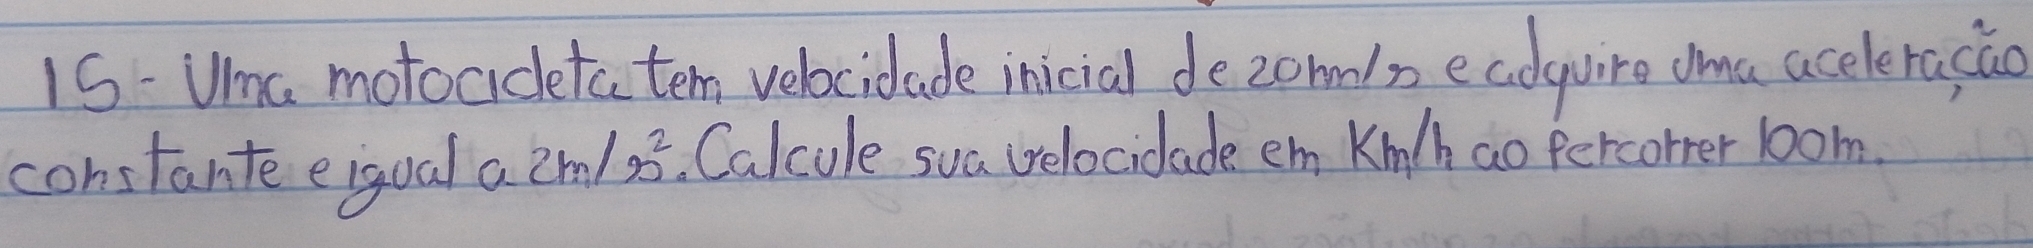 15- Uma motocicleta tem velocidade inicial de 20m/s e adquire uma aceleração
constante e igual a 2m/s². Calcule sua velocidade em Km/h ao percorrer 100m.